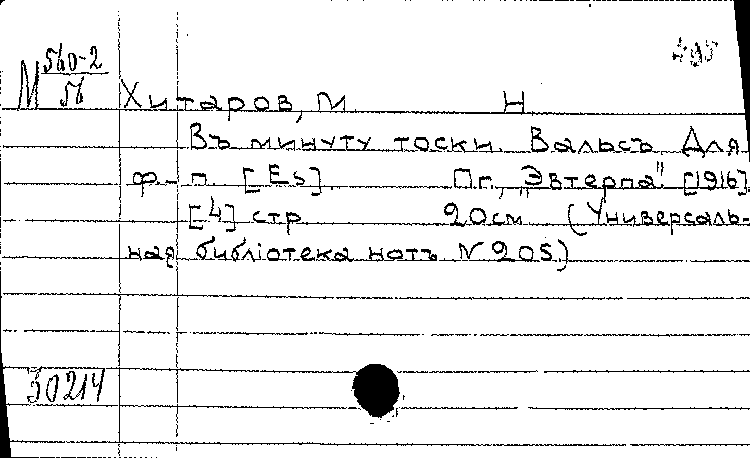 М 560-2/56
495
Хитаров, М. Н.
Въ минуту тоски. Вальсъ. Для
ф-п. [Es]. Пг., „Эвтерпа“. [1916].
[4] стр. 20см. (Универсаль-
ная библiотека нотъ N 205.)
30214